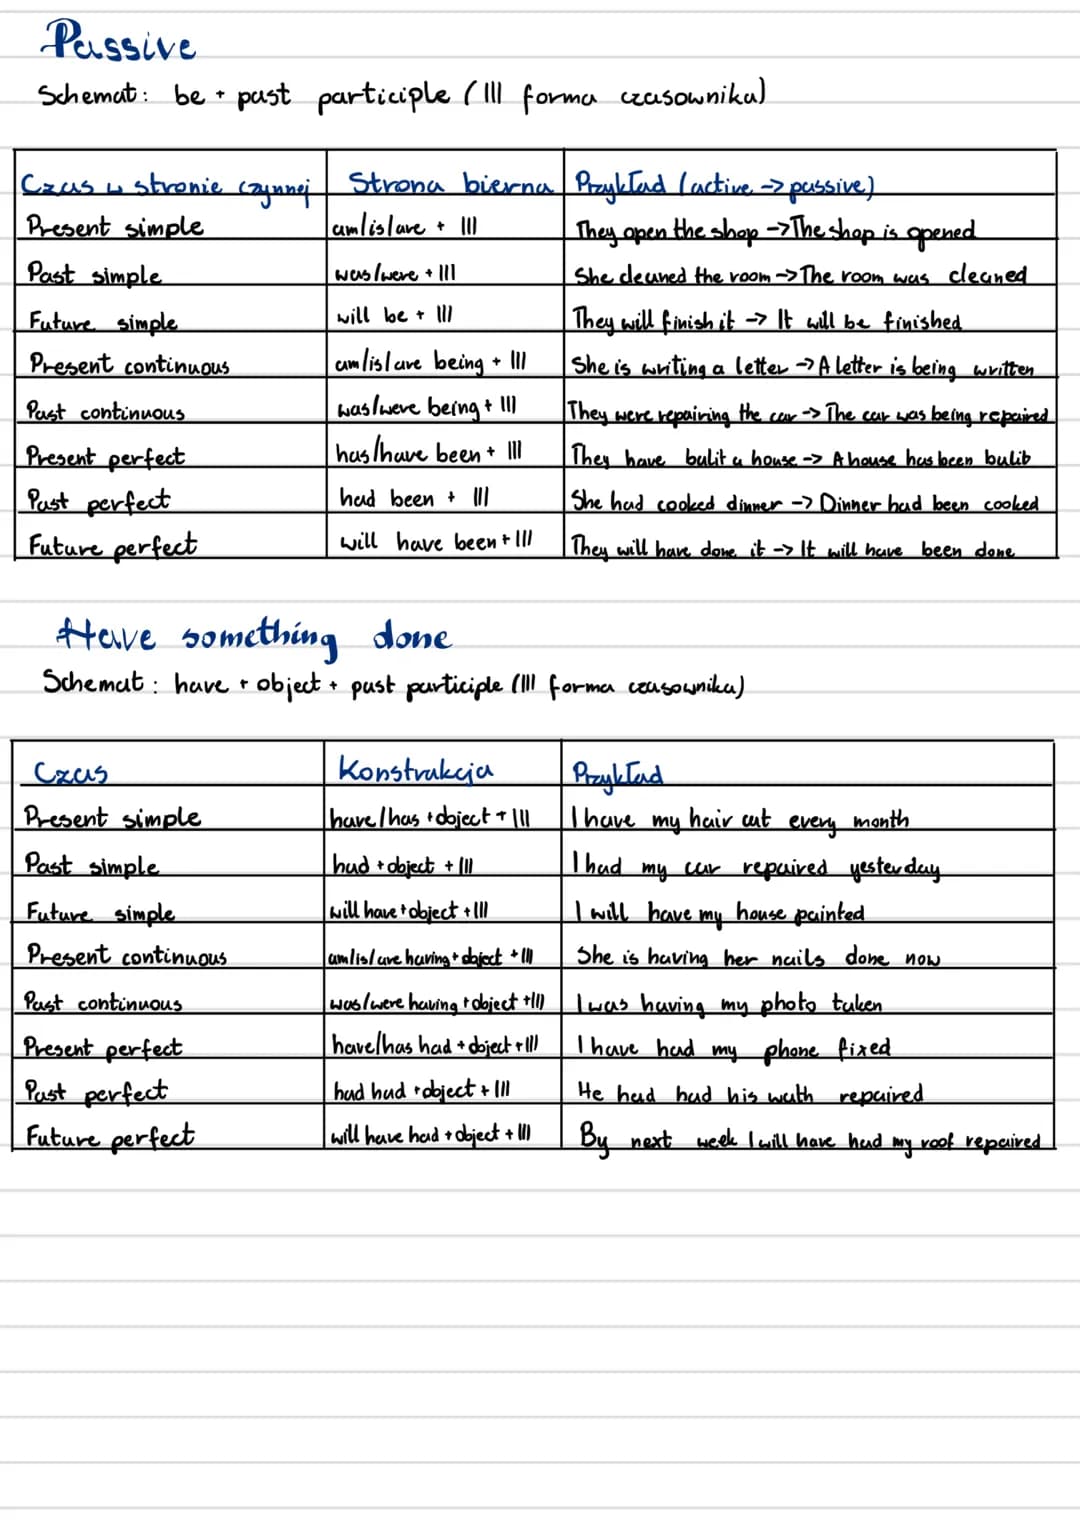 Passive
Schemat: be + past participle (III forma czasownika)
Czas w stronie czynnej Strona bierna Przykład (active -> passive)
Present simple am/is/are + III They open the shop -> The shop is opened
Past simple was/were + III She cleaned the room -> The room was cleaned
Future simple will be + III They will finish it -> It will be finished
Present continuous am/is/are being + III She is writing a letter -> A letter is being written
Past continuous was/were being + III They were repairing the car -> The car was being repaired
Present perfect has/have been + III They have bulit a house -> A house has been bulit
Past perfect had been + III She had cooked dinner -> Dinner had been cooked
Future perfect will have been + III They will have done it -> It will have been done
Have something done
Schemat: have + object + past participle (III forma czasownika)
Czas Konstrukcja Przykład
Present simple have/has + object + III I have my hair cut every month
Past simple had + object + III I had my car repaired yesterday
Future simple will have + object + III I will have my house painted
Present continuous am/is/are having + object + III She is having her nails done now
Past continuous was/were having + object + III I was having my photo taken
Present perfect have/has had + object + III I have had my phone fixed
Past perfect had had + object + III He had had his wath repaired
Future perfect will have had + object + III By next week I will have had my roof repaired